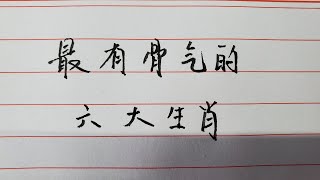 最有骨气的
六大生肖